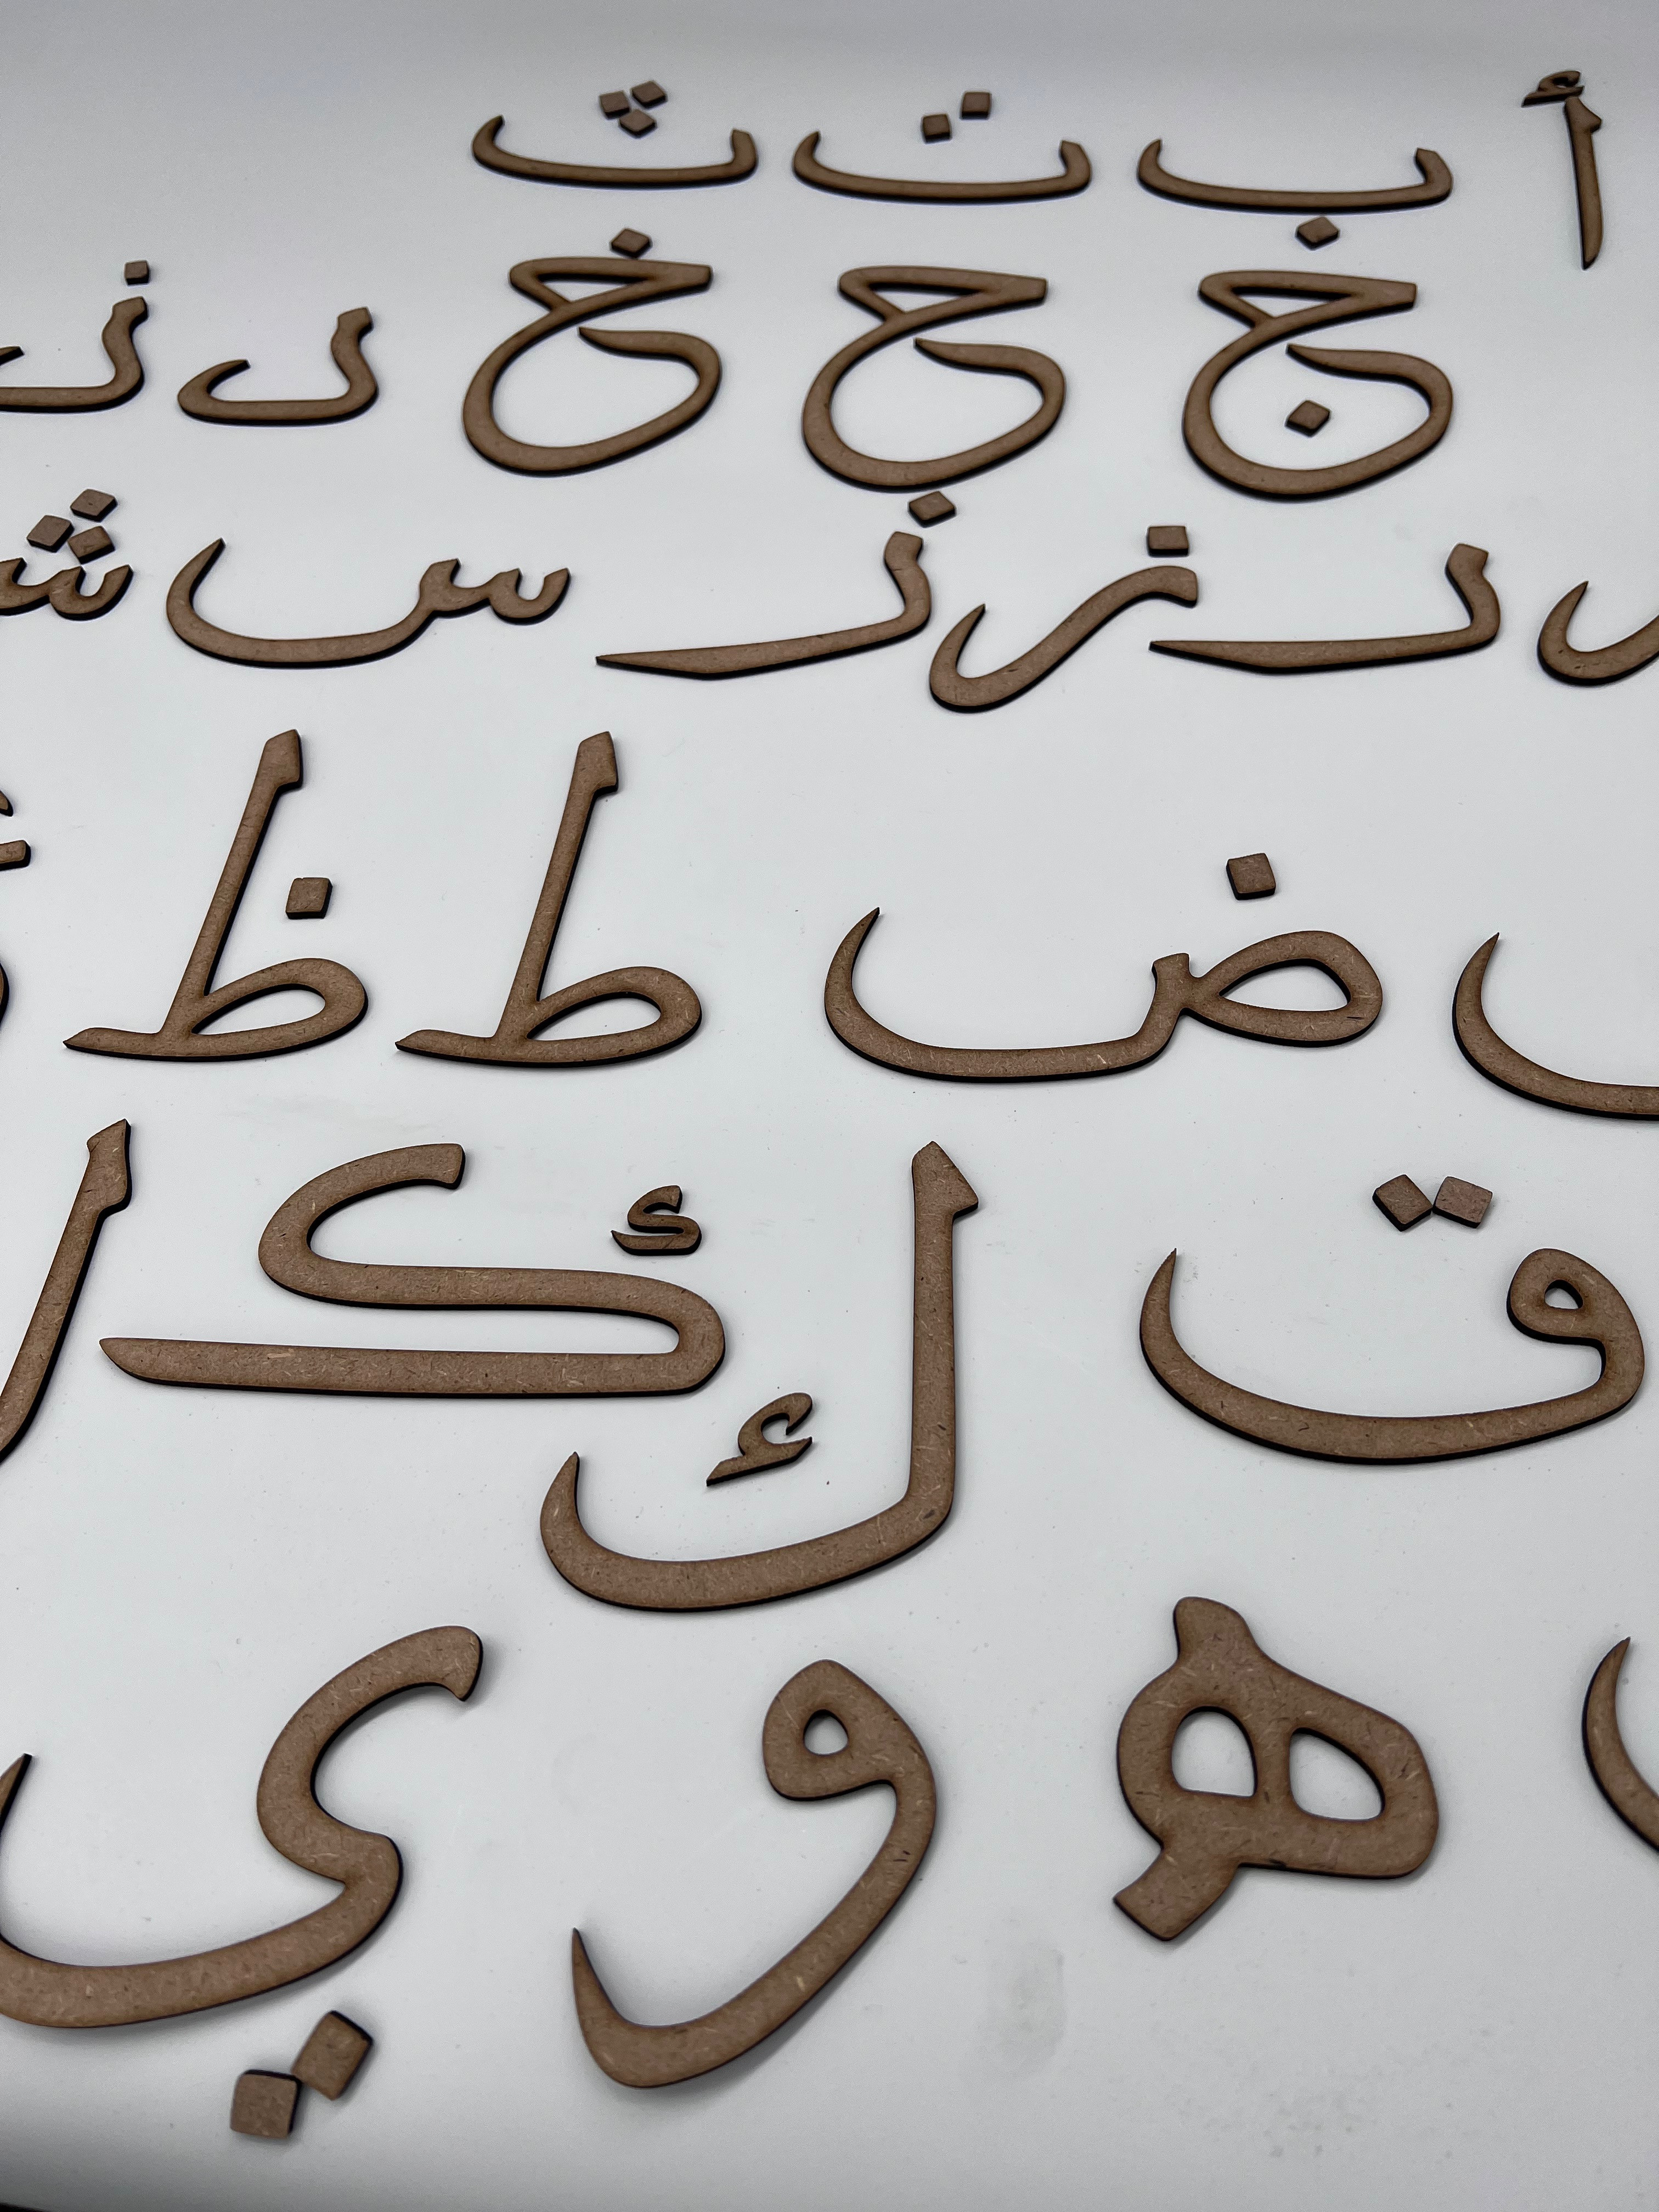 أ ب ت ث
ج ح خ د ذ
ر ر ز ز س ش
ص ض ط ظ
ق ك ك ل
ه و ي